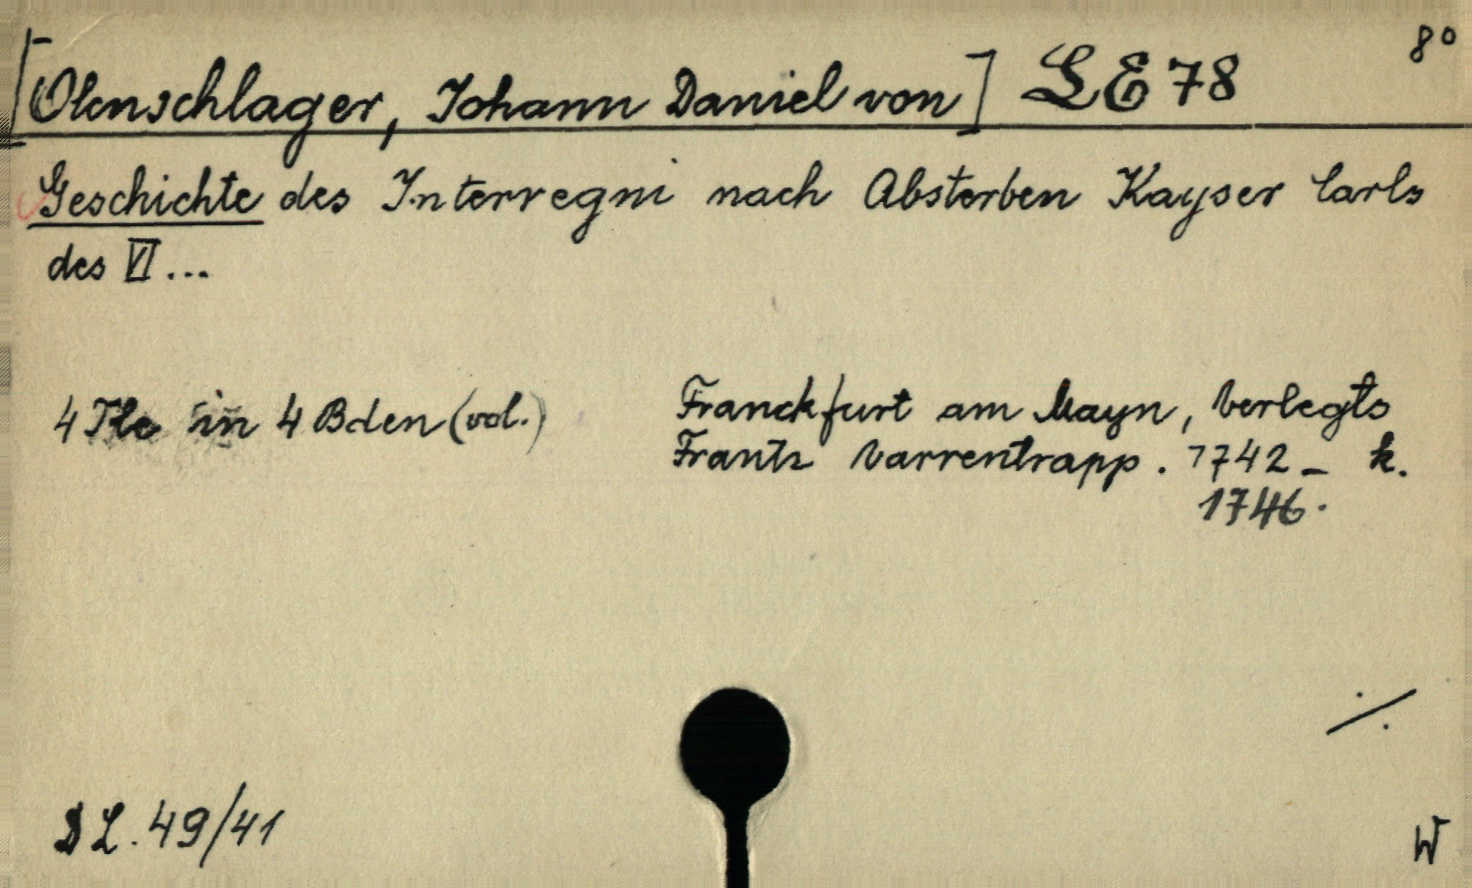 [Olenschlager, Johann Daniel von] LE 78 8°
Geschichte des Interregni nach Absterben Kayser Carls
des VI ...
4 Tle in 4 Bden (vol.)
Franckfurt am Mayn, Verlegts
Frantz Varrentrapp. 1742 - k.
1746.
./.
DL. 49/41
W